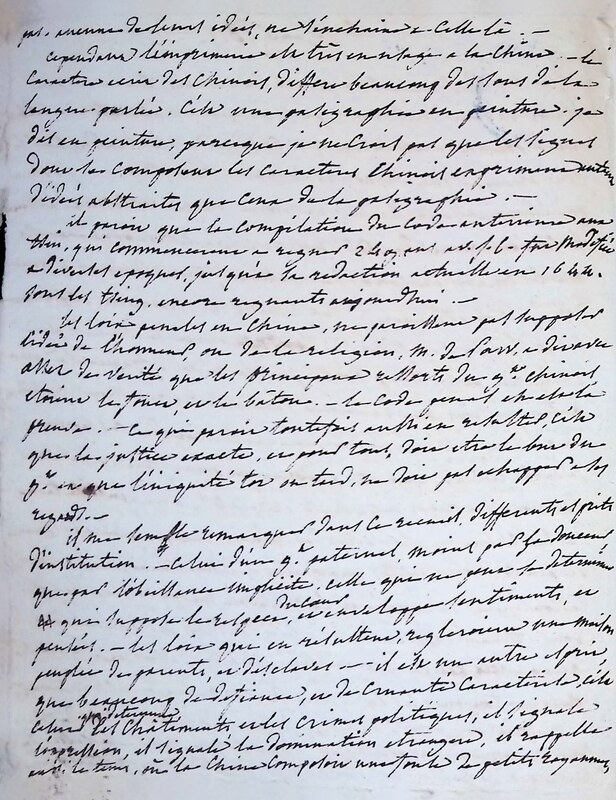 pas. aucune de leurs idées, ne s'enchaine a celle là —
cependant l'imprimerie est très en usage a la Chine. — le
caractère écrit des Chinois, differe beaucoup des sons de la
langue parlée. C'est une pasigraphie en peinture. je
dis en peinture, parceque je ne crois pas que les signes
dont se composent les caracteres Chinois expriment autres
d'idées abstraites que ceux de la pasigraphie. —
il parait que la compilation du Code anterieure aux
qui commencerent a regner av. J. C. fut modifiée
a diverses epoques, jusqu'à la redaction actuelle en 1644.
sous les tsing, encore regnants aujourdhui. —
les loix penales en Chine, ne paraissent pas supposer
l'idée de l'honneur, ou de la religion, M. de Paw, a dit avec
assez de verité que les principaux ressorts du gt. chinois
etaient le fouet, et le bâton. — le Code penal en est la
preuve. — Ce qui parait toutefois aussi en resulter, c'est
que la justice exacte, et pour tous, doit etre le but du
gt. et que l'iniquité tot ou tard, ne doit pas echapper a ses
regards. —
il me semble remarquer dans ce recueil, differents esprits
d'institution. — Celui d'un gt. paternel moins par la douceur
que par l'obeissance implicite, celle qui ne peut se determiner
qui suppose le respect du cœur, et enveloppe sentiments, et
pensées. — les loix qui en resultent, regleroient une maison
peuplée de parents, et d'esclaves — il est un autre esprit
que beaucoup de defiance, et de cruauté caracterise c'est
celui qui determine les chatiments et les crimes politiques, il signale
l'oppression, il signale la domination etrangere, il rappelle
aussi le tems, où la Chine composoit une foule de petits royaumes,